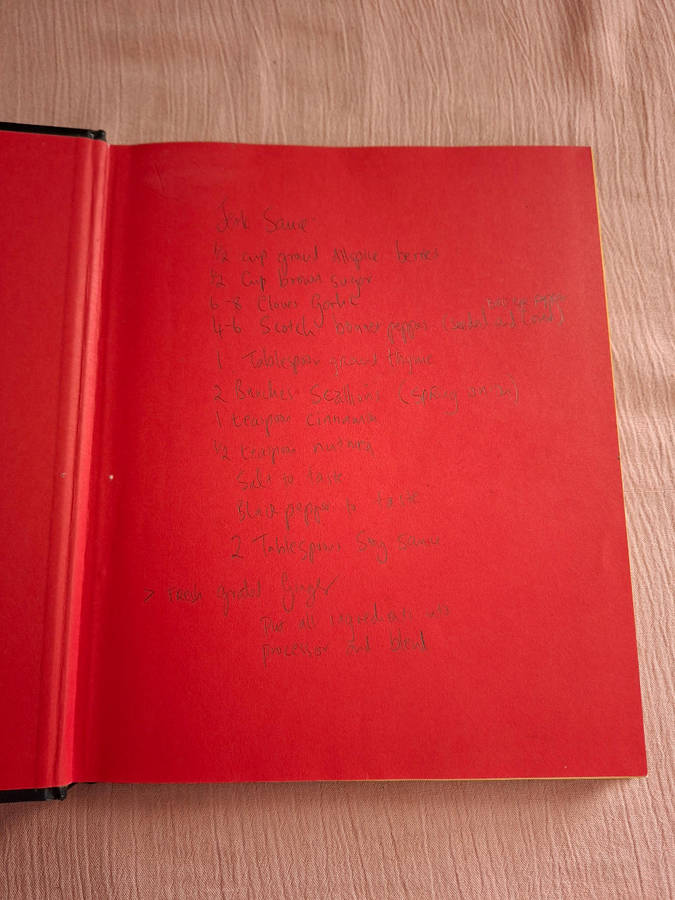 Jerk Sauce
1/2 cup ground Allspice berries
1/2 Cup brown sugar
6-8 Cloves Garlic
4-6 Scotch bonnet pepper (seeded and cored)
1 Tablespoon ground thyme
2 Bunches Scallions (spring onion)
1 teaspoon cinnamon
1/2 teaspoon nutmeg
Salt to taste
Black pepper to taste
2 Tablespoons Soy Sauce
> Fresh grated Ginger
Put all ingredients into
processor and blend